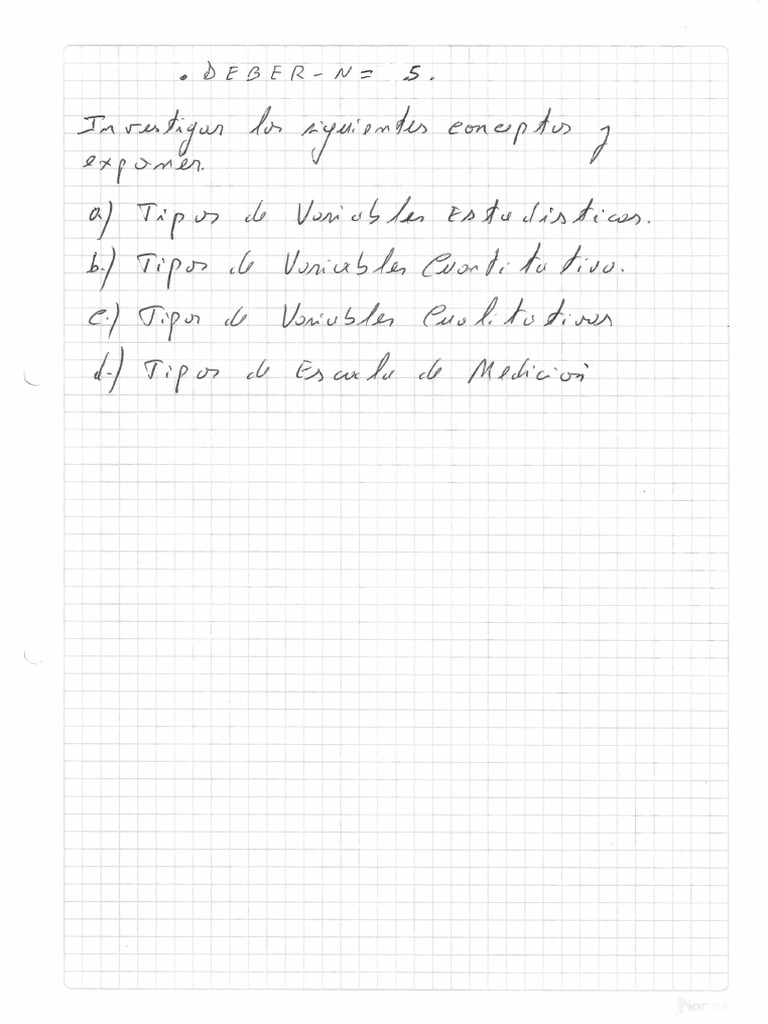 . DEBER - N= 5.
Investigar los siguientes conceptos y
exponer.
a) Tipos de Variables Estadísticas.
b.) Tipos de Variables Cuantitativa.
c.) Tipos de Variables Cualitativas
d.-) Tipos de Escala de Medición
Norma